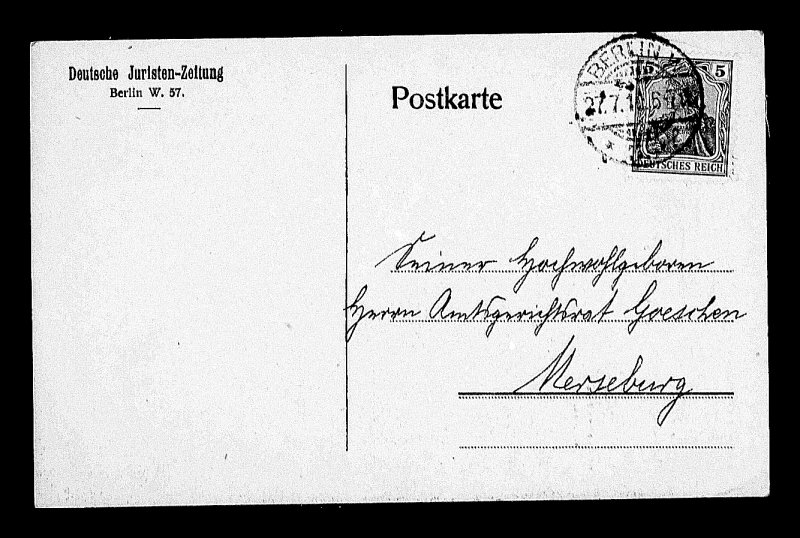 Deutsche Juristen-Zeitung
Berlin W. 57.
Postkarte
BERLIN
27.7.1
5 5
DEUTSCHES REICH
Seiner Hochwohlgeboren
Herrn Amtsgerichtsrat Goeschen
Merseburg